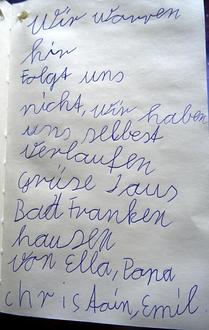 Wir warren
hir
Folgt uns
nicht, wir haben
uns selbest
verlaufen
Grüse Jaus
Bad Franken
hausen
von Ella, Papa
christain, Emil